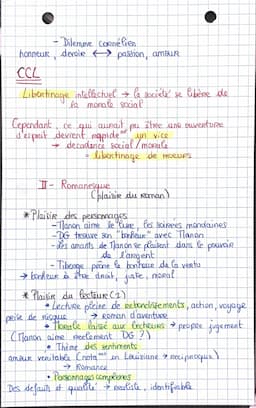 - Dilemme cornélien
honneur, devoir ↔ passion, amour
CCL
Libertinage intellectuel → la société se libère de
la morale social
Cependant, ce qui aurait pu être une ouverture
d'esprit devient rapidemt un vice
→ décadence social / morale
= libertinage de moeurs
II - Romanesque
(plaisir du roman)
* Plaisir des personnages
- Manon aime le luxe, les soirées mondaines
- DG trouve son "bonheur" avec Manon
- les amants de Manon se plaisent dans le pouvoir
de l'argent
- Tiberge prône le bonheur de la vertu
→ bonheur à être droit, juste, moral
* Plaisir du lecteur (2)
• Lecture pleine de rebondissements, action, voyage
prise de risque → roman d'aventure
• Morale laissé aux lecteurs → propre jugement
(Manon aime réellement DG ?)
• Thème des sentiments
amour véritable (notamt en Louisiane → réciproque)
→ Romance
• Personnages complexes
Des défauts et qualité → réaliste, identifiable